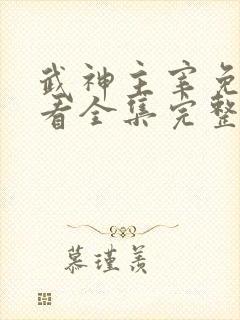 武神主宰免
看全集完整
慕瑾羡